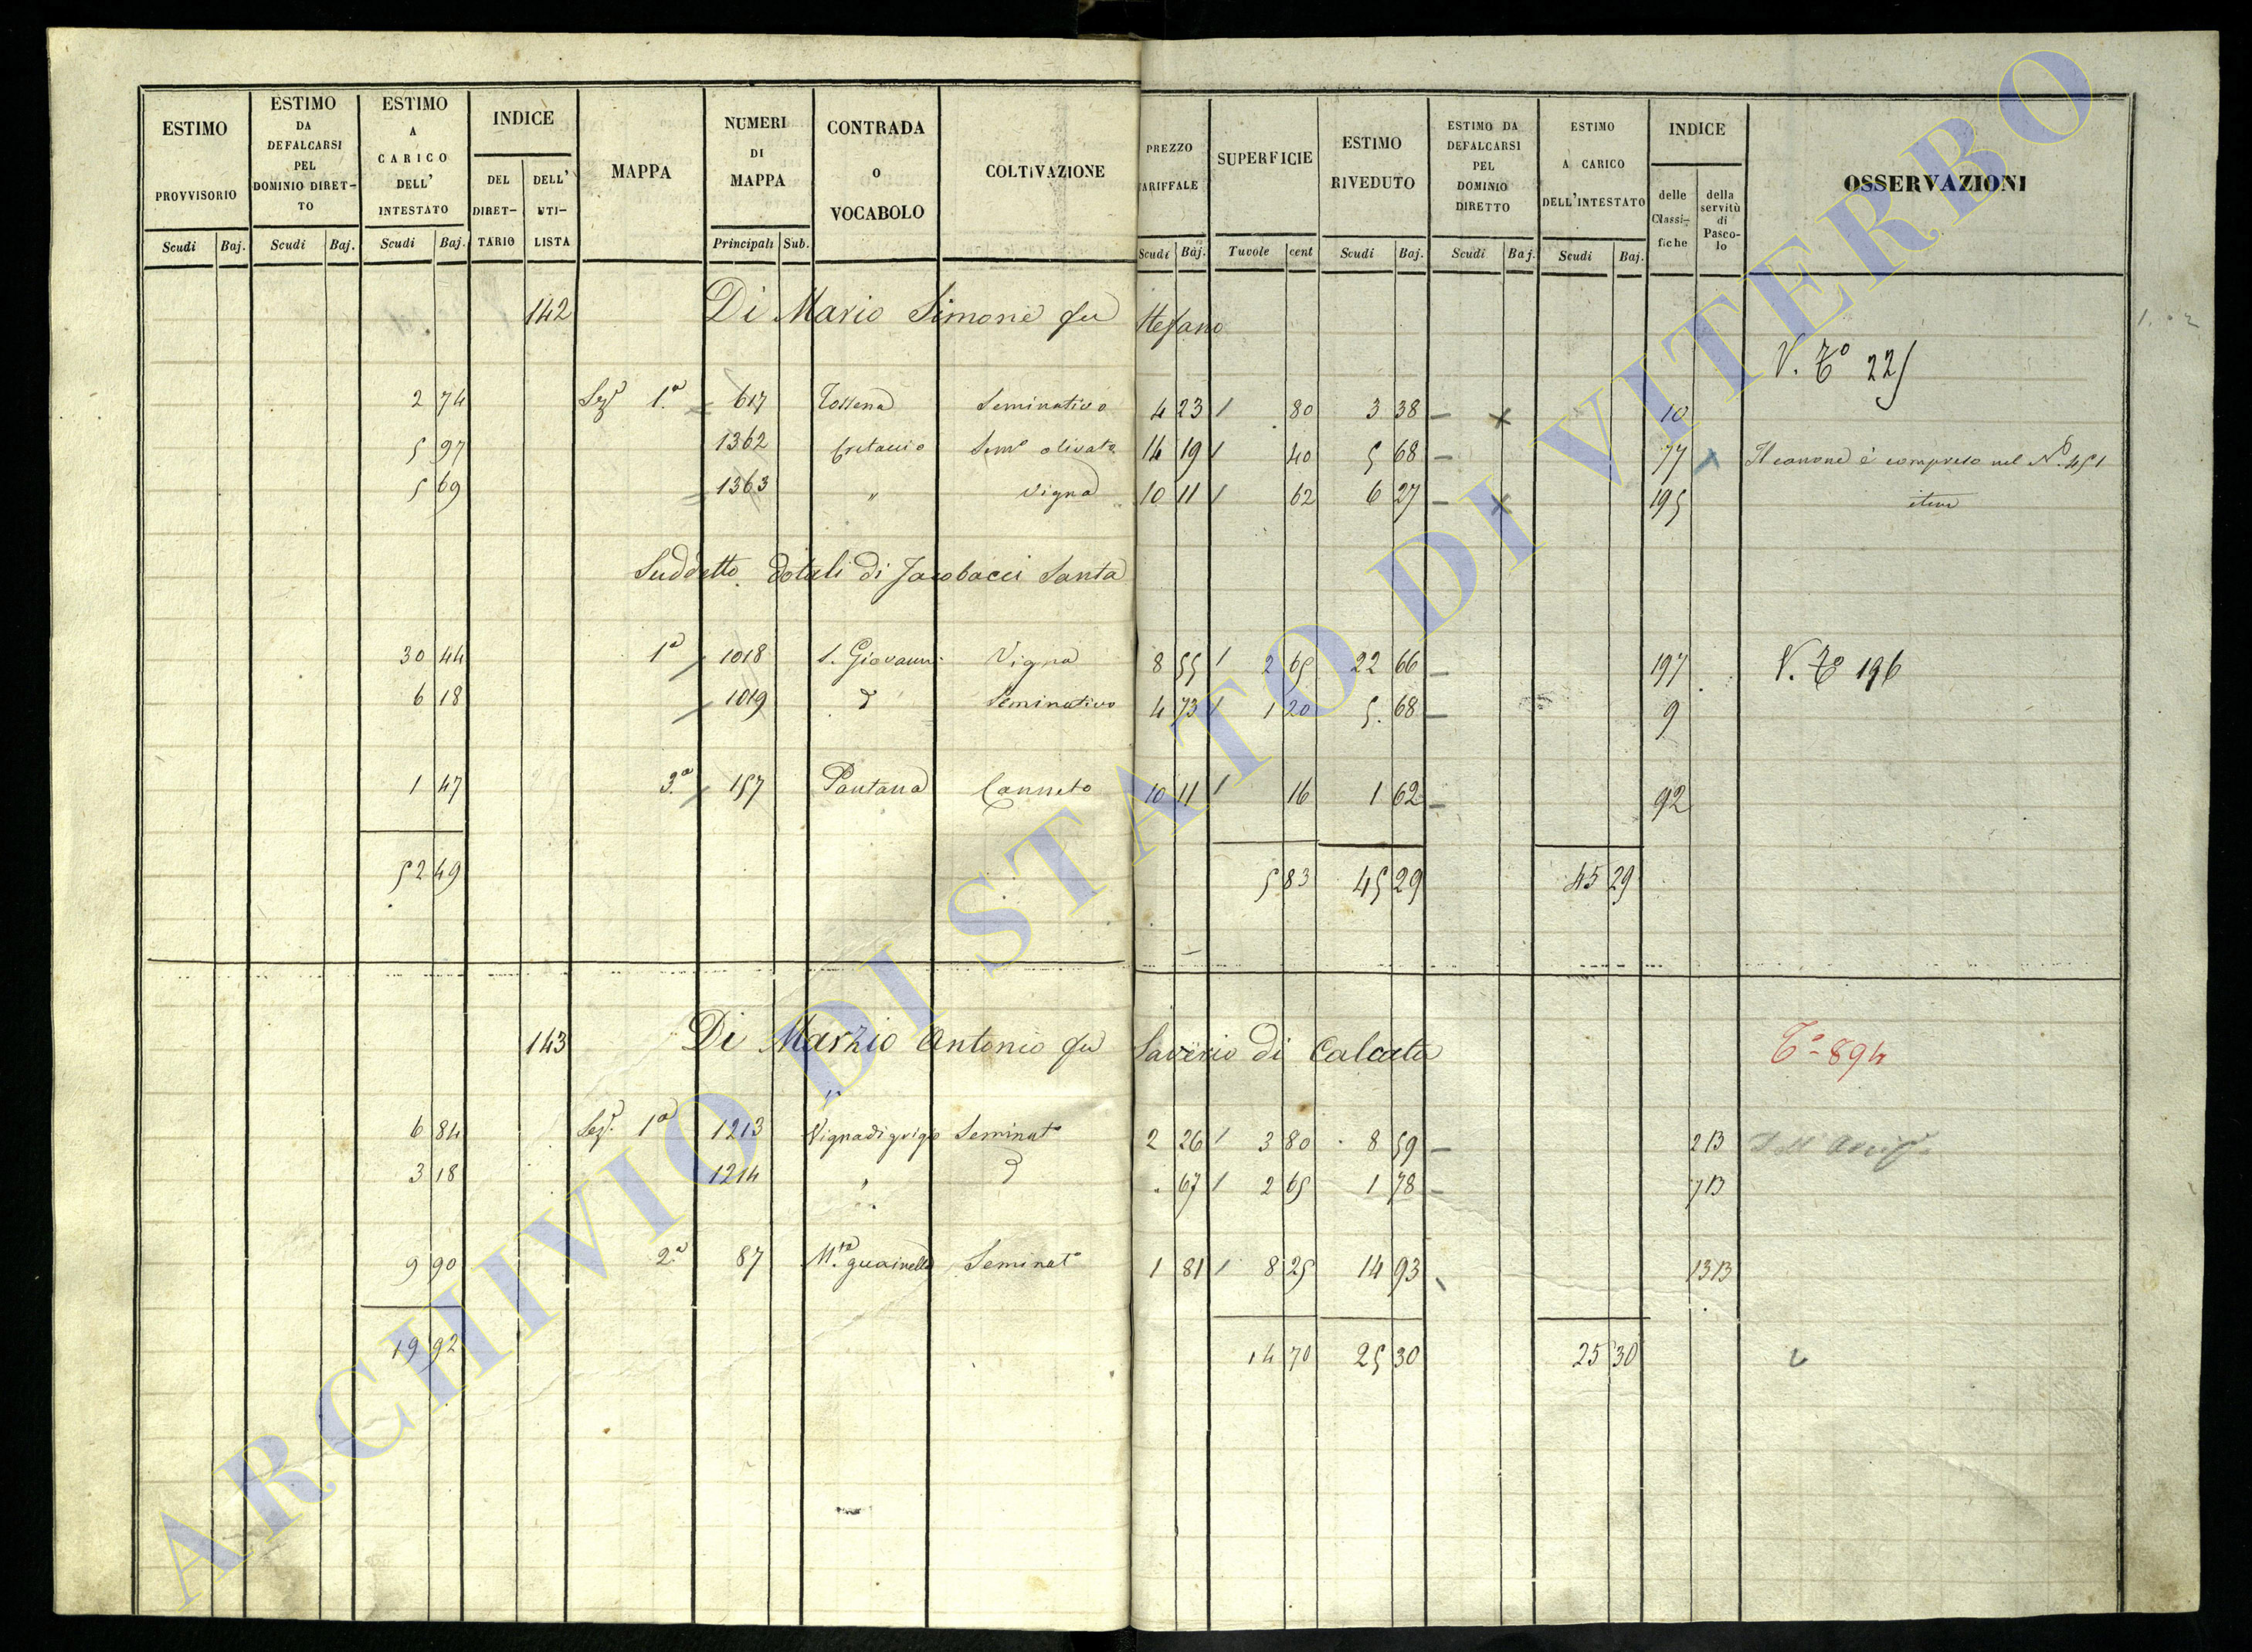 ESTIMO PROVVISORIO Scudi Baj.
ESTIMO DA DEFALCARSI PEL DOMINIO DIRET-TO Scudi Baj.
ESTIMO A CARICO DELL' INTESTATO Scudi Baj.
INDICE DEL DIRET-TARIO DELL' UTI-LISTA
MAPPA
NUMERI DI MAPPA Principali Sub.
CONTRADA O VOCABOLO
COLTIVAZIONE
PREZZO TARIFFALE Scudi Baj.
SUPERFICIE Tavole cent
ESTIMO RIVEDUTO Scudi Baj.
ESTIMO DA DEFALCARSI PEL DOMINIO DIRETTO Scudi Baj.
ESTIMO A CARICO DELL'INTESTATO Scudi Baj.
INDICE delle Classi-fiche della servitù di Pasco-lo
OSSERVAZIONI
142 Di Mario Simone fu Stefano
V. Tº 225
2 74 Sezº 1ª 617 Tossena Seminativo 4 23 / 80 3 38 – x 10
5 97 1362 Cretaccio Semº olivato 14 19 / 40 5 68 – 77 Il canone è compreso nel Nº 451
5 69 1363 " vigna 10 11 / 62 6 27 – x 195 item
Suddetto dotali di Jacobacci Santa
30 44 1ª 1018 S. Giovanni Vigna 8 55 / 2 65 22 66 – 197 V. Tº 196
6 18 1019 d Seminativo 4 73 / 1 20 5 68 – 9
1 47 3ª 157 Pantana Canneto 10 11 / 16 1 62 – 92
52 49 5 83 45 29 45 29
143 Di Marzio Antonio fu Saverio di Calcata
Tº 894
6 84 Sezº 1ª 1213 Vignadigrigio Seminatº 2 26 / 3 80 8 59 – 2 13
3 18 1214 " d . 67 / 2 65 1 78 – 7 13
9 90 2ª 87 Mª guainella Seminatº 1 81 / 8 25 14 93 13 13
19 92 14 70 25 30 25 30
ARCHIVIO DI STATO DI VITERBO